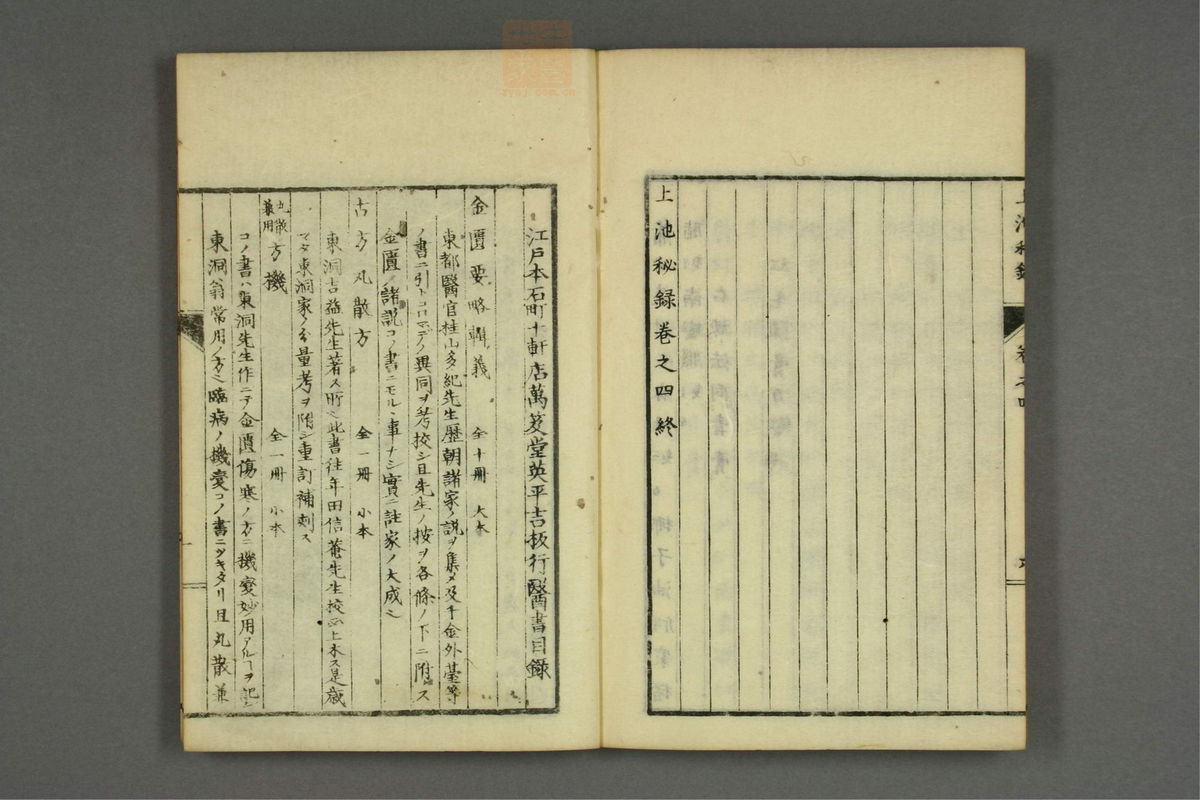 上池秘録卷之四終
江戸本石町十軒店萬笈堂英平吉板行醫書目録
金匱要略輯義　全十冊　大本
東都醫官桂山多紀先生歷朝諸家ノ説ヲ集メ及千金外臺等
ノ書ニ引トコロマデノ異同ヲ考校シ且先生ノ按ヲ各條ノ下ニ附ス
金匱ノ諸説コノ書ニモルヽ事ナシ實ニ註家ノ大成也
古方丸散方　全一冊　小本
東洞吉益先生著ス所也此書往年田信菴先生校上木ス是歳
マタ東洞家ノ分量考ヲ附シ重訂補刻ス
丸散兼用方機　全一冊　小本
コノ書ハ東洞先生作ニテ金匱傷寒ノ方ニ機変妙用アルヿヲ記シ
東洞翁常用ノ方也臨病ノ機変コノ書ニツキタリ且丸散兼